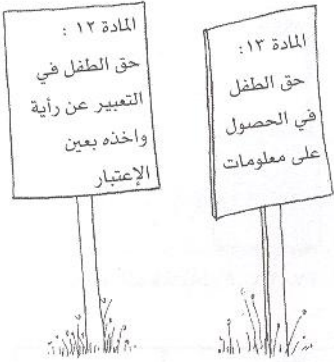 المادة ١٣ :
حق الطفل
في الحصول
على معلومات
المادة ١٢ :
حق الطفل في
التعبير عن رأية
واخذه بعين
الإعتبار